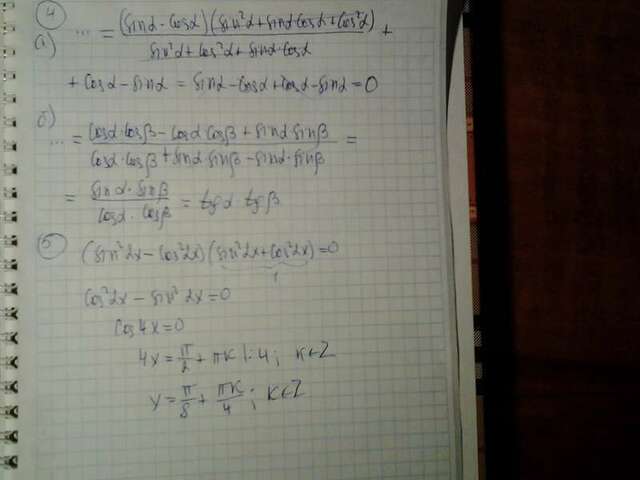 ④
а) ... = (sinα - cosα)(sin²α + sinα cosα + cos²α) / (sin²α + cos²α + sinα·cosα) +
+ cosα - sinα = sinα - cosα + cosα - sinα = 0
б)
... = (cosα·cosβ - cosα cosβ + sinα·sinβ) / (cosα·cosβ + sinα·sinβ - sinα·sinβ) =
= (sinα·sinβ) / (cosα·cosβ) = tgα tgβ
⑤ (sin²2x - cos²2x)(sin²2x + cos²2x) = 0
1
cos²2x - sin²2x = 0
cos4x = 0
4x = π/2 + πk |:4; k∈Z
x = π/8 + πk/4; k∈Z